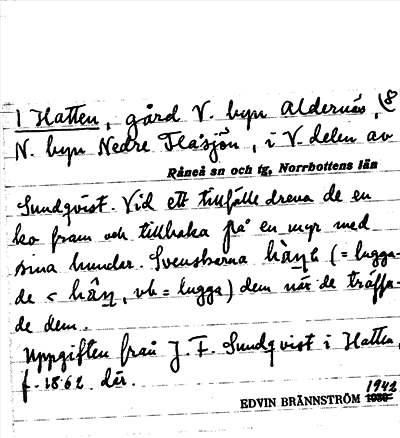 1 Hatten, gård V. byn Aldernäs, (8
N. byn Nedre Flåsjön, i V. delen av
Råneå sn och tg, Norrbottens län
Sundqvist. Vid ett tillfälle dreva de en
ko fram och tillbaka på en myr med
sina hundar. Svenskarna (= lugga-
de <, vb = lugga) dem när de träffa-
de dem.
Uppgiften från J. F. Sundqvist i Hatten,
f. 1862 där.
1942
EDVIN BRÄNNSTRÖM